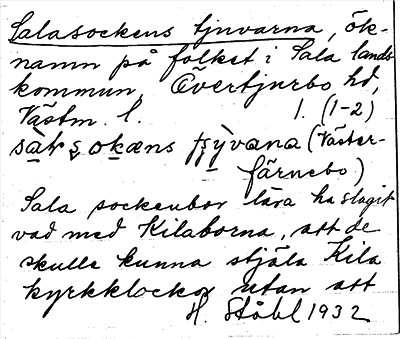 Salasockens tjuvarna, ök-
namn på folket i Sala lands
kommun, Övertjurbo hd,
Västm. l. 1. (1-2)
sàḷʂokæns (Väster-
färnebo)
Sala sockenbor lära ha slagit
vad med Kilaborna, att de
skulle kunna stjäla Kila
kyrkklockor utan att
H. Ståhl 1932